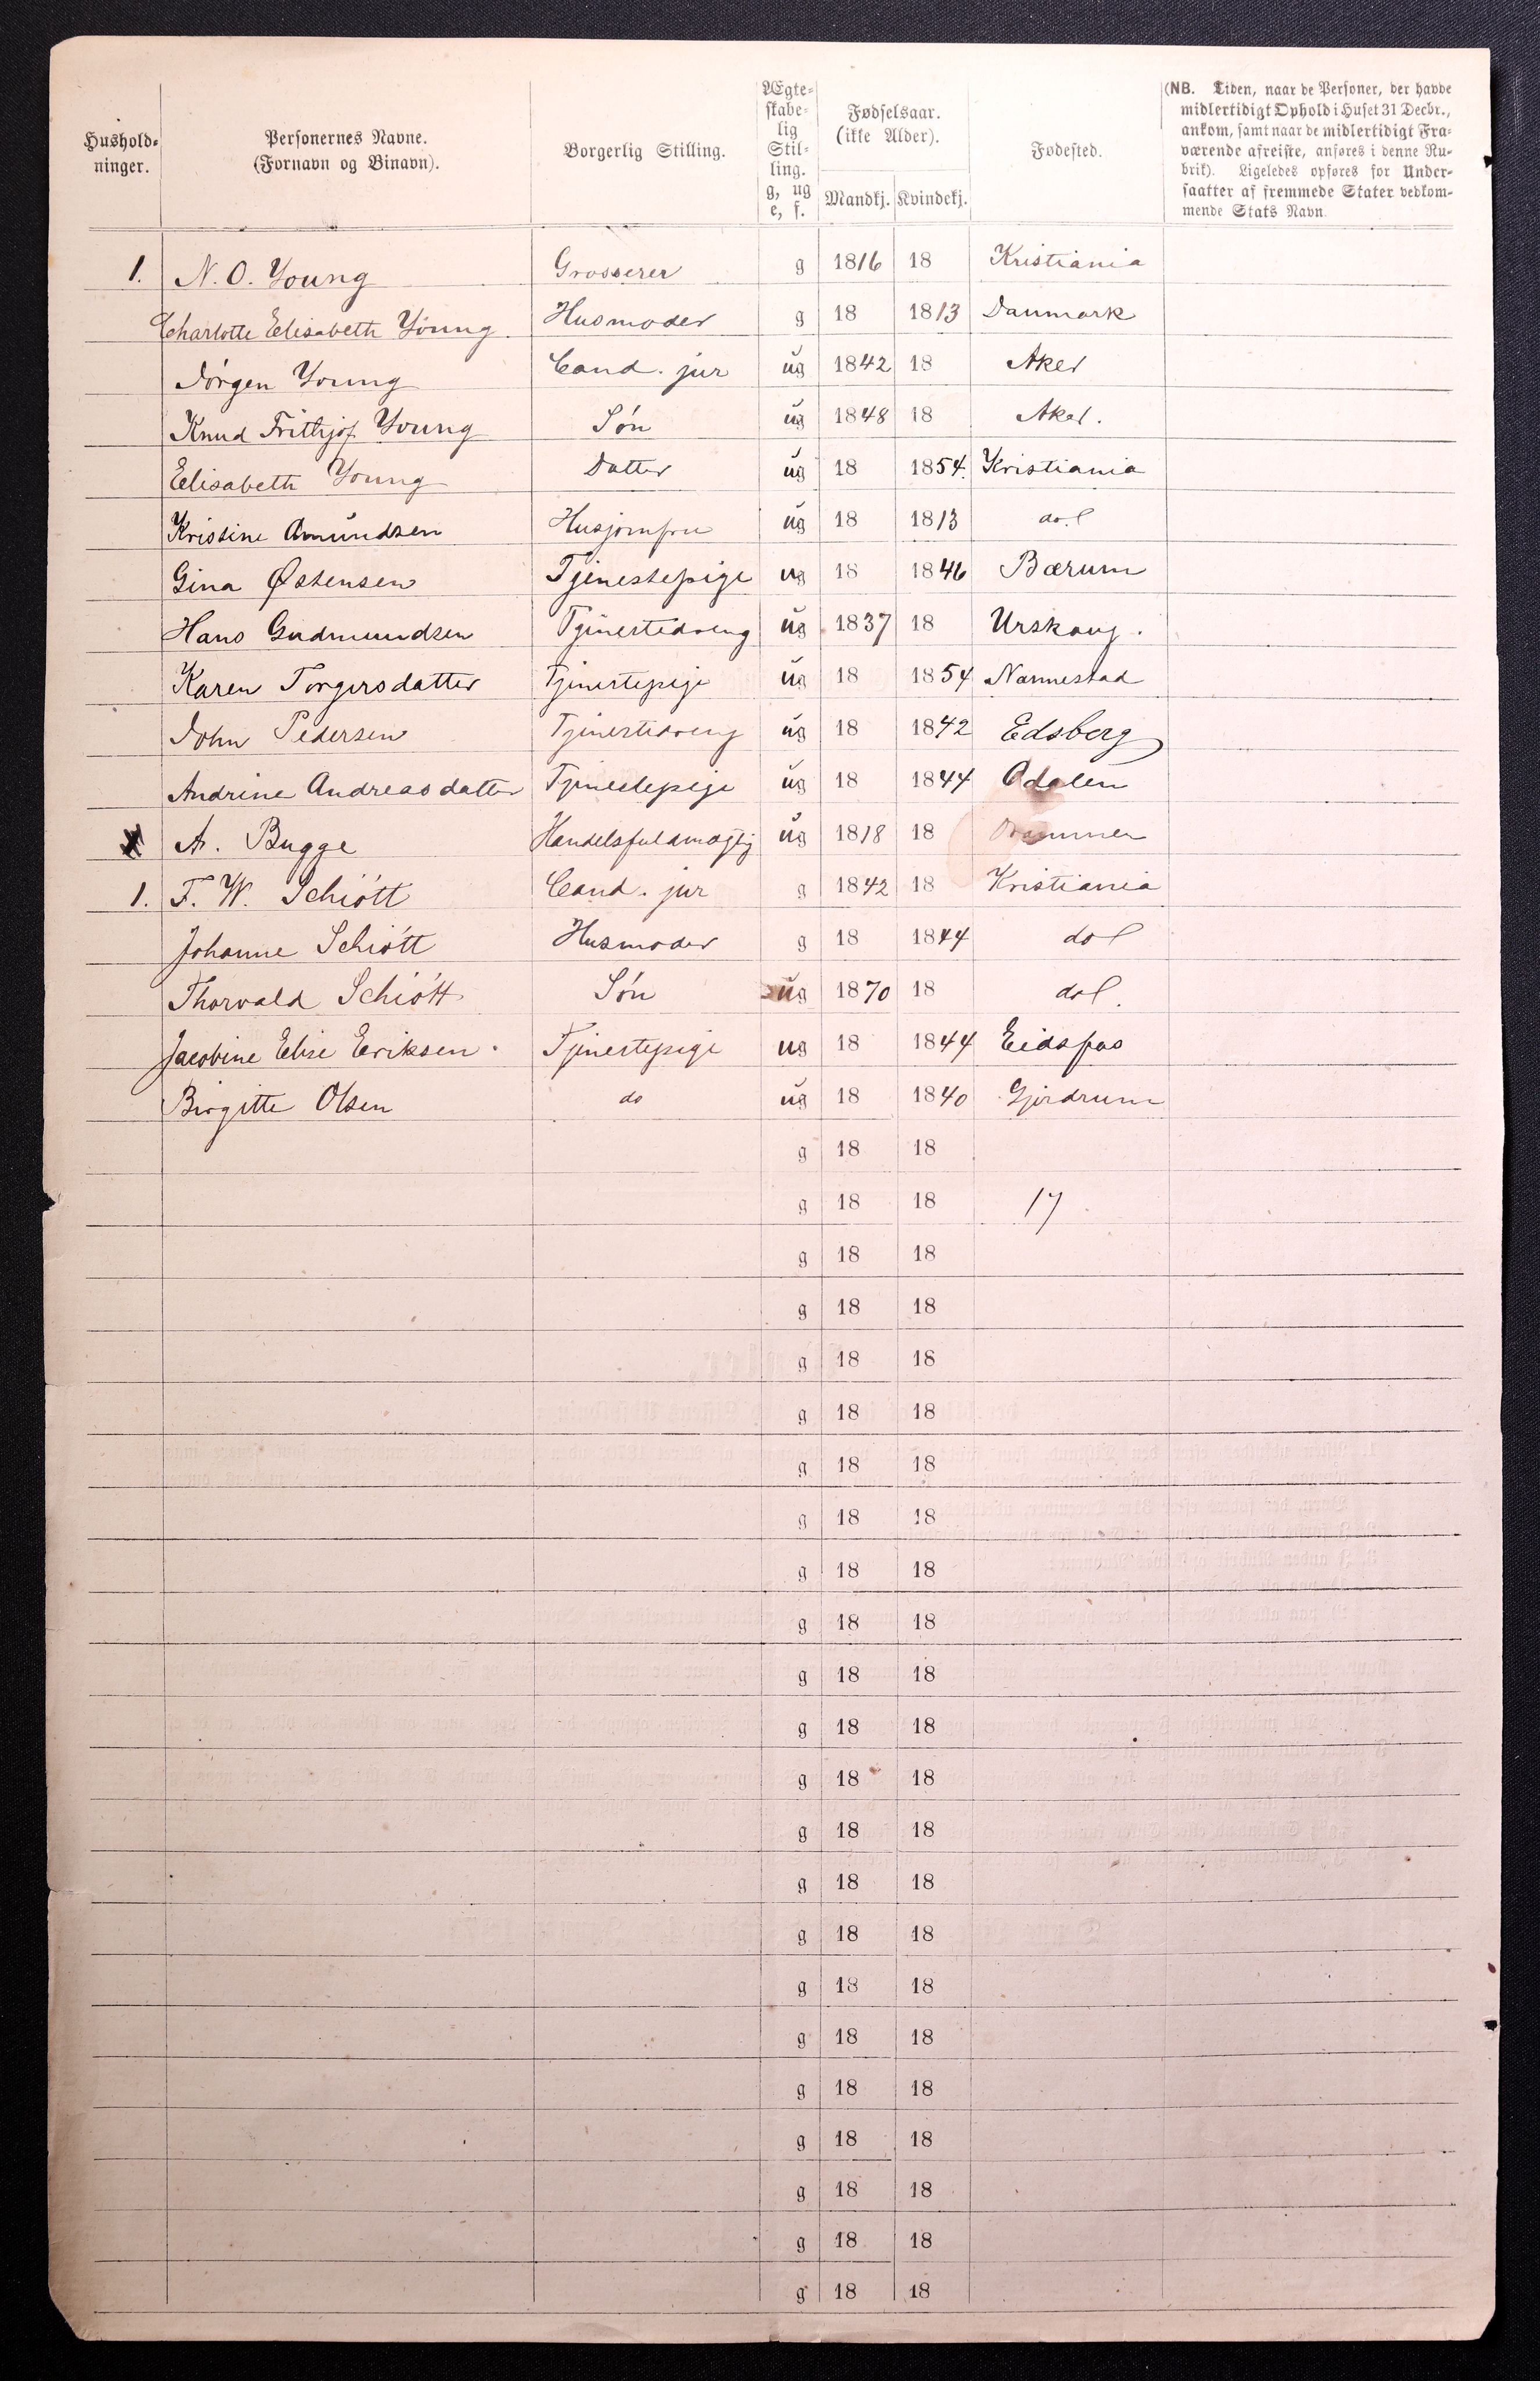 Hushold-
ninger.
Personernes Navne.
(Fornavn og Binavn).
Borgerlig Stilling.
Ægte-
skabe-
lig
Stil-
ling.
g, ug
e, f.
Fødselsaar.
(ikke Alder).
Mandkj. Kvindekj.
Fødested.
(NB. Tiden, naar de Personer, der havde
midlertidigt Ophold i Huset 31 Decbr.,
ankom, samt naar de midlertidigt Fra-
værende afreiste, anføres i denne Ru-
brik). Ligeledes opføres for Under-
saatter af fremmede Stater vedkom-
mende Stats Navn.
1. N. O. Young Grosserer g 1816 18 Kristiania
Charlotte Elisabeth Young. Husmoder g 18 1813 Danmark
Jörgen Young Cand. jur ug 1842 18 Aker
Knud Frithjof Young Sön ug 1848 18 Aker.
Elisabeth Young Datter ug 18 1854. Kristiania
Kristine Amundsen Husjomfru ug 18 1813 do.
Gina Østensen Tjenestepige ug 18 1846 Bærum
Hans Gudmundsen Tjenestedreng ug 1837 18 Urskoug.
Karen Torgersdatter Tjenestepige ug 18 1854 Nannestad
John Pedersen Tjenestedreng ug 18 1842 Edsberg
Andrine Andreasdatter Tjenestepige ug 18 1844 Odalen
A. Bugge Handelsfuldmægtig ug 1818 18 Drammen
1. F. W. Schiött Cand. jur g 1842 18 Kristiania
Johanne Schiött Husmoder g 18 1844 do
Thorvald Schiött Sön ug 1870 18 do.
Jacobine Elise Eriksen. Tjenestepige ug 18 1844 Eidsfos
Birgitte Olsen do ug 18 1840 Gjerdrum
g 18 18
g 18 18 17
g 18 18
g 18 18
g 18 18
g 18 18
g 18 18
g 18 18
g 18 18
g 18 18
g 18 18
g 18 18
g 18 18
g 18 18
g 18 18
g 18 18
g 18 18
g 18 18
g 18 18
g 18 18
g 18 18
g 18 18
g 18 18